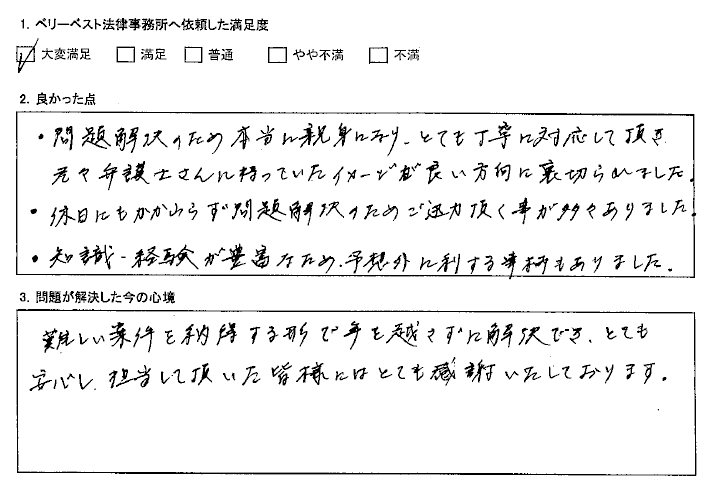 1. ベリーベスト法律事務所へ依頼した満足度
大変満足 満足 普通 やや不満 不満
2. 良かった点
・問題解決のため本当に親身になり、とても丁寧に対応して頂き
元々弁護士さんに持っていたイメージが良い方向に裏切られました。
・休日にもかかわらず問題解決のためご尽力頂く事が多々ありました。
・知識・経験が豊富なため、予想外に利する事柄もありました。
3. 問題が解決した今の心境
難しい案件を納得する形で年を越さずに解決でき、とても
安心し、担当して頂いた皆様にはとても感謝いたしております。